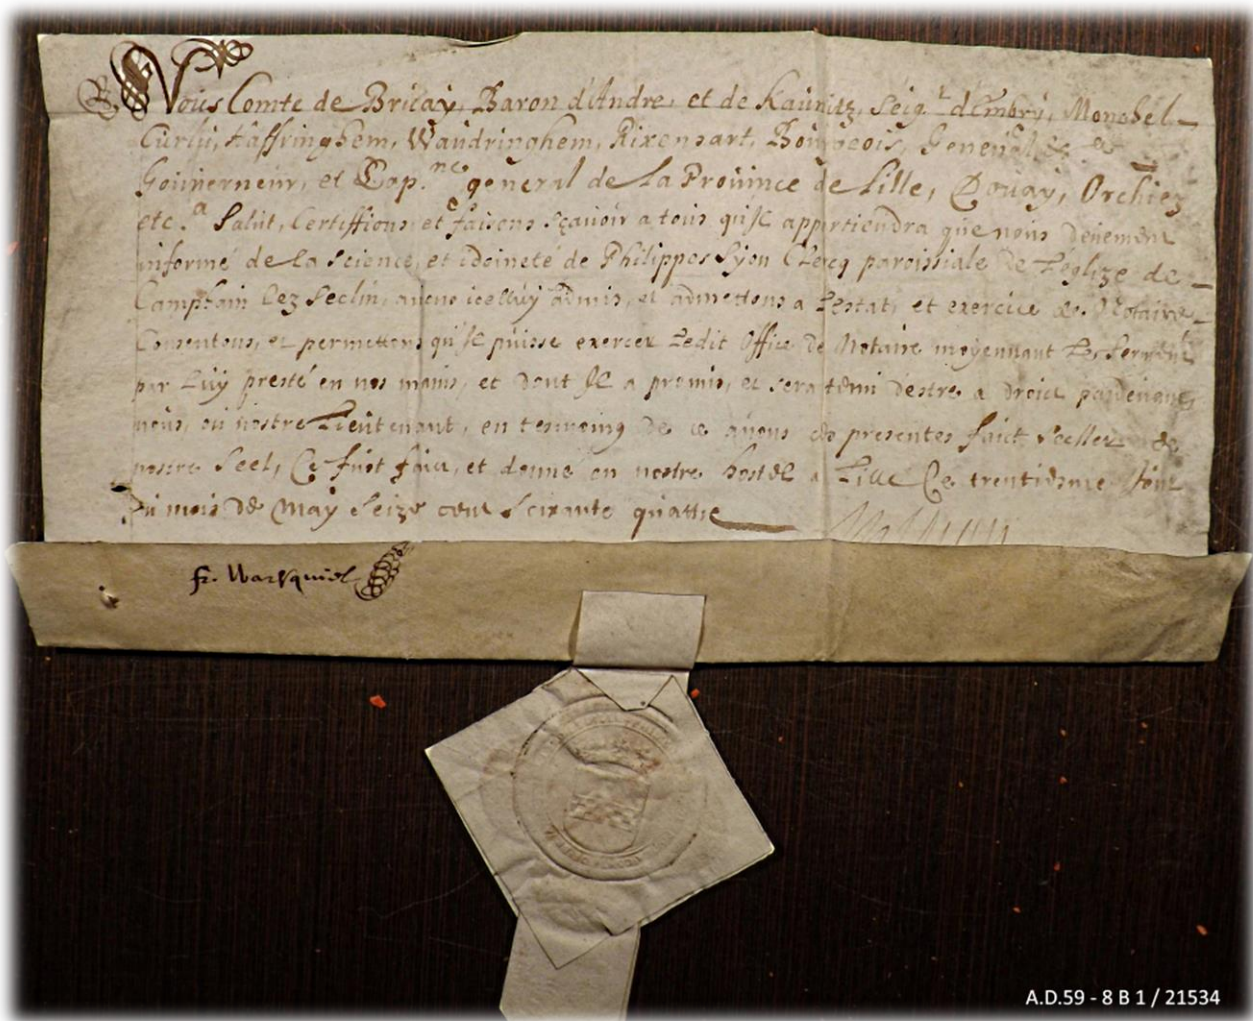 Nous Comte de Bruay, Baron d'Andre, et de Kaunitz, Seigr. d'Embri, Monobel
Curlu, Haffringhem, Waudringhem, Rixensart, Bourgeois, General
Gouuerneur, et Cap.ne general de la Prouince de Lille, Douay, Orchies
etc.a Salut, Certiffions, et faisons sçauoir a tous qu'il appertiendra que nous deuement
informé de la science, et idoineté de Philippes Lyon Clercq paroissiale de L'eglize de
Camphain lez Seclin, auons icelluy admis, et admettons a l'estat, et exercice de Notaire
Consentons, et permettons qu'il puisse exercer ledit Office de Notaire moyennant le serment
par luy presté en nos mains, et dont Il a promis, et sera tenu d'estre a droict pardeuant
nous, ou nostre Lieutenant, en tesmoing de ce auons ces presentes faict seeller de
nostre Seel, Ce fust faict, et donné en nostre hostel a Lille Ce trentiesme Jour
du mois de May Seize cent Soixante quattre
fr. Warcquiel
A.D.59 - 8 B 1 / 21534